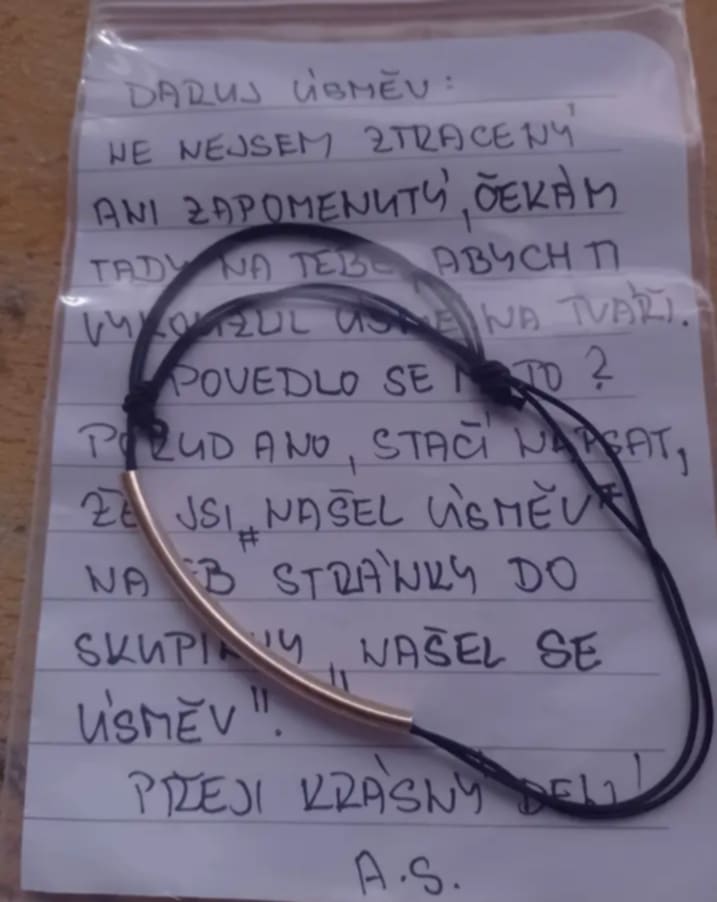 DARUJ ÚSMĚV:
NE NEJSEM ZTRACENÝ
ANI ZAPOMENUTÝ, ČEKÁM
TADY NA TEBE, ABYCH TI
VYKOUZLIL ÚSMĚV NA TVÁŘI.
POVEDLO SE MI TO?
POKUD ANO, STAČÍ NAPSAT,
ŽE JSI #NAŠEL ÚSMĚV#
NA FB STRÁNKY DO
SKUPINY „NAŠEL SE
ÚSMĚV".
PŘEJI KRÁSNÝ DEN!
A.S.